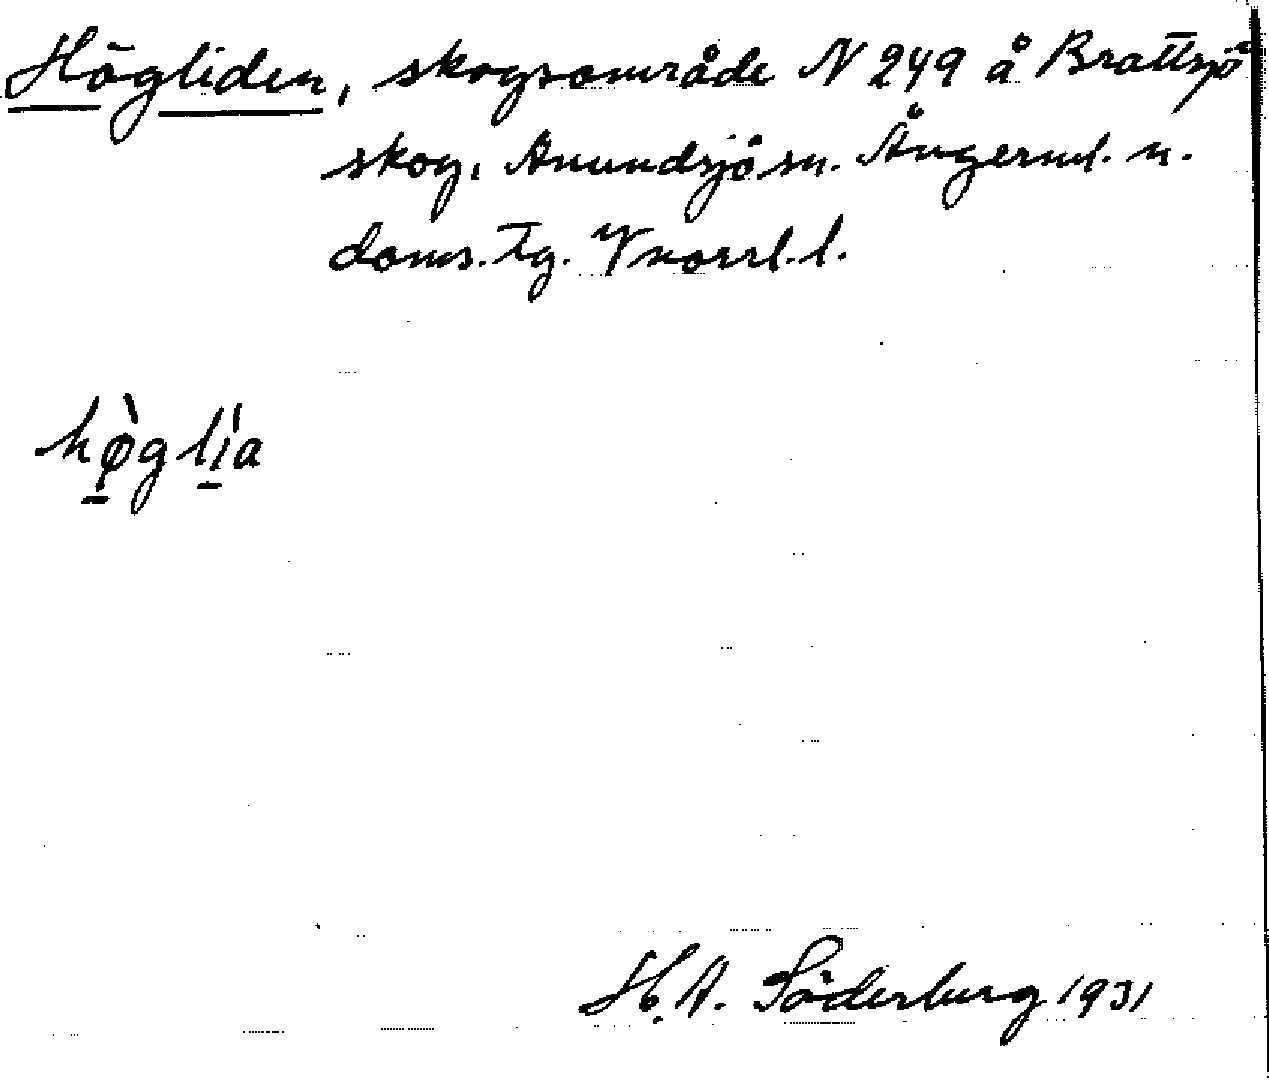 Högliden, skogsområde N 249 å Brattsjö
skog, Anundsjö sn. Ångerml. n.
doms. tg. Vnorrl. l.
hø̀glía
H. A. Söderburg 1931